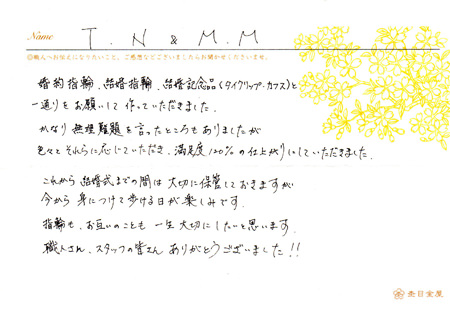 Name T.N & M.M
◎職人へお伝えになりたいこと、ご感想などございましたらお聞かせくださいませ。
婚約指輪、結婚指輪、結婚記念品(タイクリップ・カフス)と
一通りをお願いして作っていただきました。
かなり無理難題を言ったところもありましたが
色々とそれらに応じていただき、満足度120%の仕上がりにしていただきました。
これから結婚式までの間は大切に保管しておきますが
今から身につけて歩ける日が楽しみです。
指輪も、お互いのことも一生大切にしたいと思います。
職人さん、スタッフの皆さんありがとうございました!!
杢目金屋